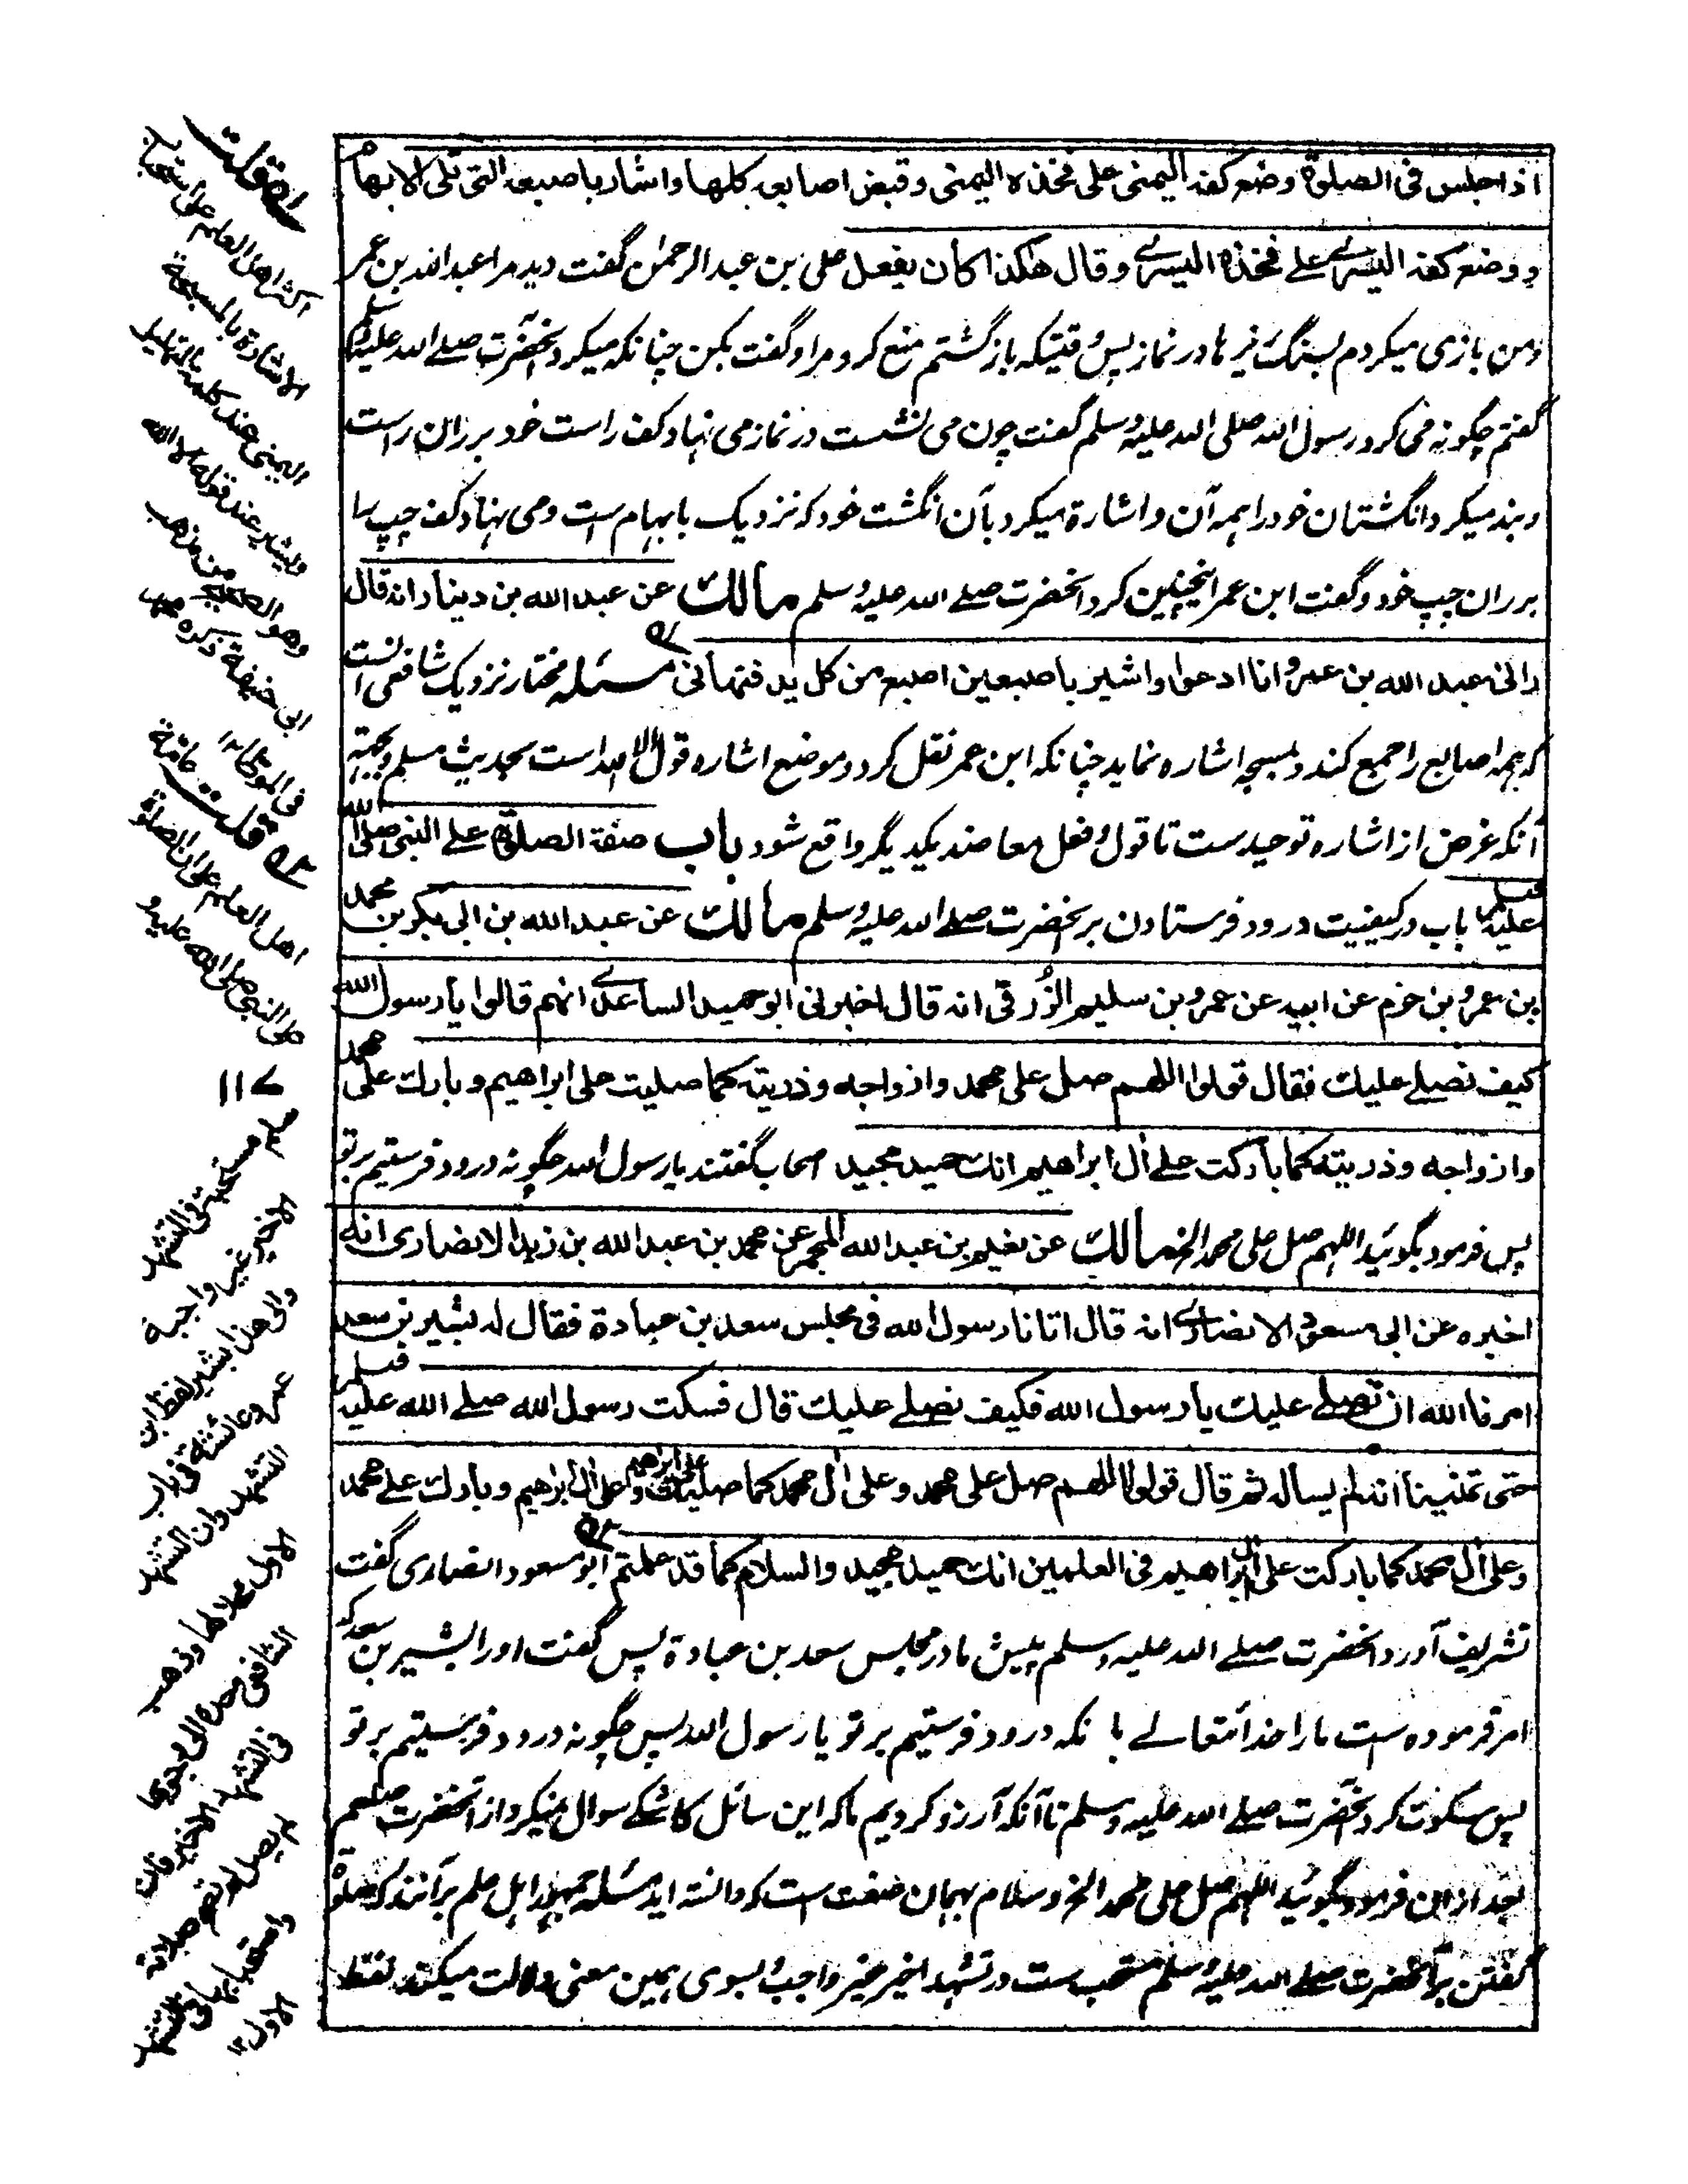 اذا جلس فی الصلوة وضع کفه الیمنی علی فخذه الیمنی وقبض اصابعه کلها واشار باصبعه التی تلی الابهام
ووضع کفه الیسرے علے فخذه الیسرے وقال هکذا کان یفعل علی بن عبد الرحمن گفت دید مرا عبد الله بن عمر
ومن بازی میکردم بسنگ ریزها در نماز پس وقتیکه بازگشتم منع کرد مرا وگفت بکن چنانکه میکرد آنحضرت صلے الله علیه وسلم
گفتم چگونه می کرد رسول الله صلی الله علیه وسلم گفت چون می نشست در نماز می نهاد کف راست خود بر ران راست
وبند میکرد انگشتان خود را همه آن واشارة میکرد بآن انگشت خود که نزدیک بابهام است ومی نهاد کف چپ را
بر ران چپ خود وگفت ابن عمر اینچنین کرد آنحضرت صلے الله علیه وسلم مالك عن عبد الله بن دینار انه قال
رانی عبد الله بن عمر وانا ادعوا واشیر باصبعین اصبع من کل ید فنهانی مسئله مختار نزدیک شافعی آنست
که همه اصابع را جمع کند وبمسبحه اشاره نماید چنانکه ابن عمر نقل کرد وموضع اشاره قول الا الله است بحدیث مسلم وبجهة
آنکه غرض از اشاره توحید ست تا قول وفعل معاضد یکدیگر واقع شود باب صفة الصلوة علے النبی صلی الله
علیه وسلم باب در کیفیت درود فرستادن بر آنحضرت صلے الله علیه وسلم مالك عن عبد الله بن ابی بکر بن محمد
بن عمرو بن حزم عن ابیه عن عمرو بن سلیم الزُرقی انه قال اخبرنی ابو حمید الساعدے انهم قالوا یا رسول الله
کیف نصلے علیك فقال قولوا اللهم صل علی محمد وازواجه وذریته کما صلیت علی ابراهیم وبارك علی محمد
وازواجه وذریته کما بارکت علے آل ابراهیم انك حمید مجید اصحاب گفتند یا رسول الله چگونه درود فرستیم بر تو
پس فرمود بگوئید اللهم صل علی محمد الخ مالك عن نعیم بن عبد الله المجمر عن محمد بن عبد الله بن زید الانصاری انه
اخبره عن ابی مسعود الانصارے انه قال اتانا رسول الله فی مجلس سعد بن عبادة فقال له بشیر بن سعد
امرنا الله ان نصلے علیك یا رسول الله فکیف نصلے علیك قال فسکت رسول الله صلے الله علیه وسلم
حتی تمنینا انه لم یساله ثم قال قولوا اللهم صل علی محمد وعلی آل محمد کما صلیت علی ابراهیم وعلی آل ابراهیم وبارك علے محمد
وعلی آل محمد کما بارکت علی آل ابراهیم فی العلمین انك حمید مجید والسلام کما قد علمتم ابو مسعود انصاری گفت
تشریف آورد آنحضرت صلے الله علیه وسلم پیش ما در مجلس سعد بن عبادة پس گفت او را بشیر بن سعد که
امر فرموده ست ما را خدائتعالے با نکه درود فرستیم بر تو یا رسول الله پس چگونه درود فرستیم بر تو
پس سکوت کرد آنحضرت صلے الله علیه وسلم تا آنکه آرزو کردیم ما که این سائل کاشکے سوال نمیکرد از آنحضرت صلعم
بعد ازان فرمود بگوئید اللهم صل علی محمد الخ وسلام بهمان صفت است که دانسته اید مسئله جمهور اهل علم برآنند که صلوة
گفتن بر آنحضرت صلے الله علیه وسلم مستحب ست در تشهد اخیر غیر واجب وبسوی همین معنی دلالت میکند لفظ
له قلت
اکثر اهل العلم علی استحباب
الاشارة بالمسبحة
الیمنی عند کلمة التهلیل
ویشیر عند قوله الا الله
وهو الصحیح من مذهب
ابی حنیفة ذکره محمد
فی الموطا
قلت عامة
اهل العلم علی ان الصلوة
علی النبی صلی الله علیه و
۱۱۷
سلم مستحبة فی التشهد
الاخیر غیر واجبة
والی هذا یشیر لفظ ابن
عمر وعائشة فی باب
التشهد وان التشهد
الاول محلا لها وذهب
الشافعی وحده الی وجوبها
فی التشهد الاخیر فان
لم یصل لم تصح صلاته
واستحبابها فی التشهد
الاول